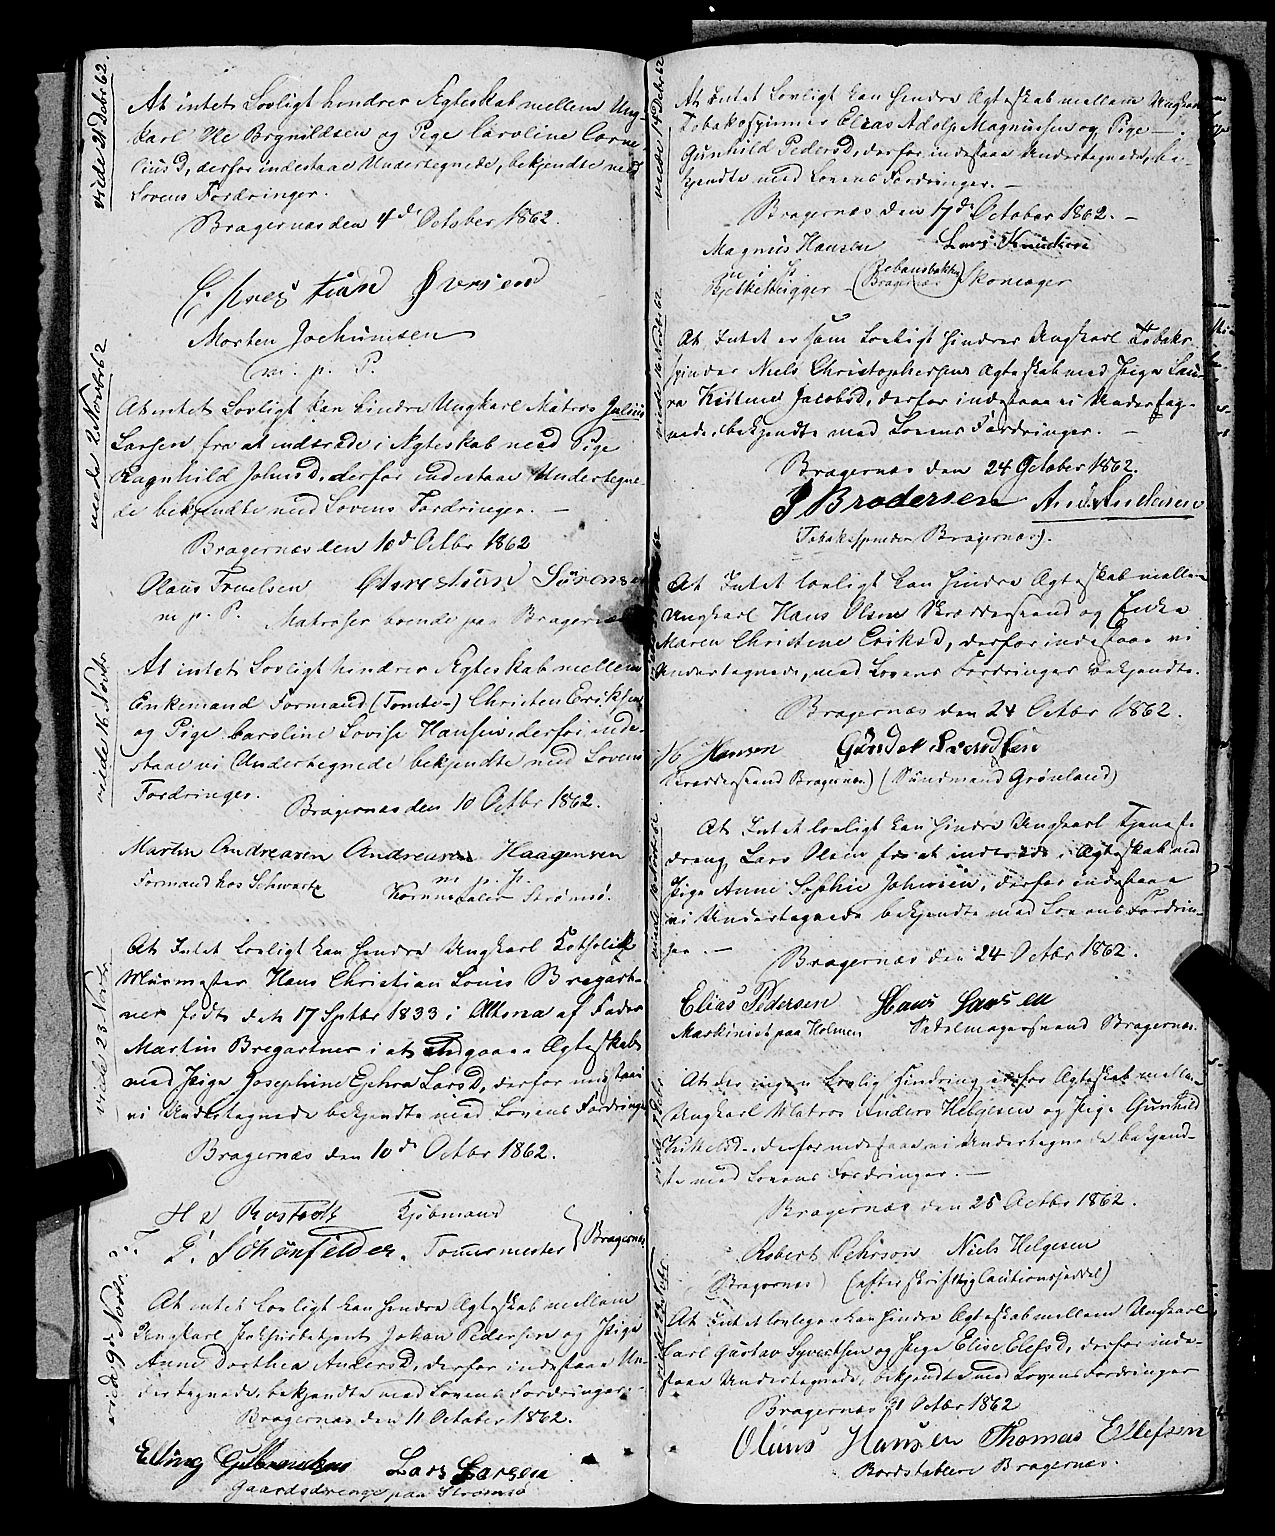 viede 21 Decbr 62.
At intet Lovligt hindrer Ægteskab mellem Ung-
karl Ole Brynildsen og Pige Caroline Corne-
liusd, derfor indestaae Undertegnede, bekjendte med
Lovens Fordringer.
Bragernæs den 4d October 1862.
Christian Iversend
Morten Jochumsen
m. p. P.
viede 2 Novbr 62
At intet Lovligt kan hindre Ungkarl Matros Julius
Larsen fra at indtræde i Ægteskab med Pige
Ragnhild Johnsd, derfor indestaae Undertegne-
de bekjendte med Lovens Fordringer. —
Bragernæs den 10d Octbr 1862
Olaus Truelsen Christian Sörensen
m. p. P Matroser boende paa Bragernæs
viede 16 Novbr.
At intet Lovligt hindrer Ægteskab mellem
Enkemand Formand (Tomte-) Christen Eriksen
og Pige Caroline Lovise Hansen, derfor inde-
staae vi Undertegnede bekjendte med Lovens
Fordringer.
Bragernæs den 10 Octbr 1862.
Martin Andreasen Andreas Haagensen
Formand hos Schwartz m. p. P.
Strømsø.
viede 23 Novbr.
At Intet lovligt kan hindre Ungkarl Katholik
Muurmester Hans Christian Louis Bregart-
ner født den 17 Septbr 1833 i Altona af Fader
Martin Bregartner i at indgaae Ægteskab
med Pige Josephine Larsd, derfor indestaae
vi Undertegnede bekjendte med Lovens Fordringer
Bragernæs den 10d Octbr 1862.
Rostock Kjøbmand
G. Schönfelder. Bragernæs
viede 9de Novbr.
At intet lovligt kan hindre Ægteskab mellem
Ungkarl Johan Pedersen og Pige
Anne Dorthea Andersd, derfor indestaae Un-
dertegnede, bekjendte med Lovens Fordringer.
Bragernæs den 11 October 1862.
Elling Gulbrandsen Lars Larsen
Gaardsdrenge paa Strømsø
viede 14 Decbr 62
At Intet Lovligt kan hindre Ægteskab mellem Ungkarl
Tobakspinder Elias Adolp Magnussen og Pige —
Gunhild Pedersd, derfor indestaae Undertegnede, be-
kjendte med Lovens Fordringer. —
Bragernæs den 17de October 1862. —
Magnus Hansen Lars Knudsen
m. p. P. Skomager
(Bragernæs)
viede 16 Novbr 62
At Intet er som Lovligt hindrer Ungkarl Tobak-
spinder Niels Christophersens Ægteskab med Pige Lau-
ra Kistine Jacobsd, derfor indestaae vi Underteg-
nede, bekjendte med Lovens Fordringer. —
Bragernæs den 24 October 1862.
J Brodersen And: Andersen
(Tobakspinder Bragernæs).
At Intet lovligt kan hindre Ægteskab mellem
Ungkarl Hans Olsen Skræddersvend og Enke
Maren Christine Eriksd, derfor indestaae vi
Undertegnede, med Lovens Fordringer bekjendte.
Bragernæs den 24 Octbr 1862.
Hansen Gundel Svendsen
Skræddersvend Bragernæs) (Sandmand Grønland)
At Intet lovligt kan hindre Ungkarl Tjeneste-
dreng Lars Olsen fra at indtræde i Ægteskab med
Pige Anne Sophie Johnsen, derfor indestaae
vi Undertegnede bekjendte med Lovens Fordrin-
ger. —
Bragernæs den 24 Octbr 1862.
Elias Pedersen Hans Hansen
Maskinist paa Holmen Sadelmagersvend Bragernæs
At der ingen lovlig Hindring er for Ægteskab mellem
Ungkarl Matros Anders Helgesen og Pige Gunhild
derfor indestaae vi Undertegnede bekjend-
te med Lovens Fordringer. —
Bragernæs den 25 Octbr 1862.
Robert Pehrson Niels Helgesen
Bragernæs (efter skriftlig Cautionsseddel)
At Intet lovligen kan hindre Ægteskab mellem Ungkarl
Carl Gustav Syvertsen og Pige Elise Elefsd, derfor inde-
staae Undertegnede, bekjendte med Lovens Fordringer
Bragernæs 31 Octbr 1862
Olaus Hansen Thomas Ellefsen
Bordstablere Bragernæs.